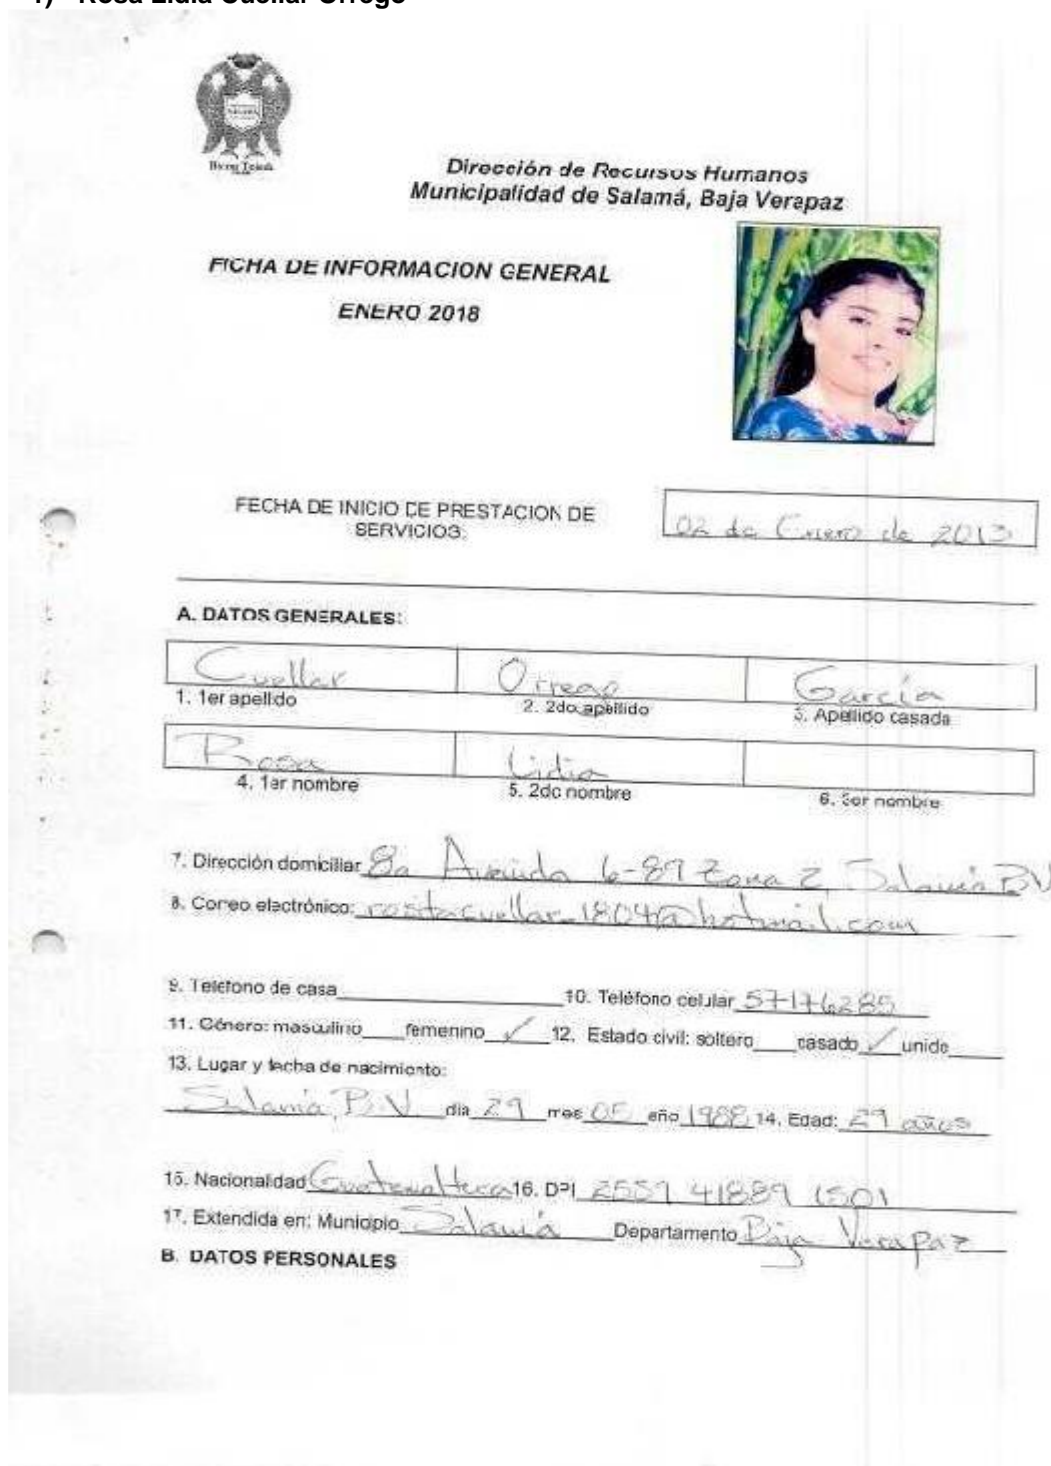 1) Rosa Lidia Cuellar Orrego
Dirección de Recursos Humanos
Municipalidad de Salamá, Baja Verapaz
FICHA DE INFORMACION GENERAL
ENERO 2018
FECHA DE INICIO DE PRESTACION DE
SERVICIOS:
02 de Enero de 2013
A. DATOS GENERALES:
Cuellar Orrego García
1. 1er apellido 2. 2do apellido 3. Apellido casada
Rosa Lidia
4. 1er nombre 5. 2do nombre 6. 3er nombre
7. Dirección domiciliar 8a Avenida 6-89 Zona 2, Salamá B.V
8. Correo electrónico: rositacuellar_1804@hotmail.com
9. Teléfono de casa 10. Teléfono celular 57176285
11. Género: masculino femenino ✓ 12. Estado civil: soltero casado ✓ unido
13. Lugar y fecha de nacimiento:
Salamá, B.V. día 29 mes 05 año 1988 14. Edad: 29 años
15. Nacionalidad Guatemalteca 16. DPI 2559 41889 1501
17. Extendida en: Municipio Salamá Departamento Baja Verapaz
B. DATOS PERSONALES